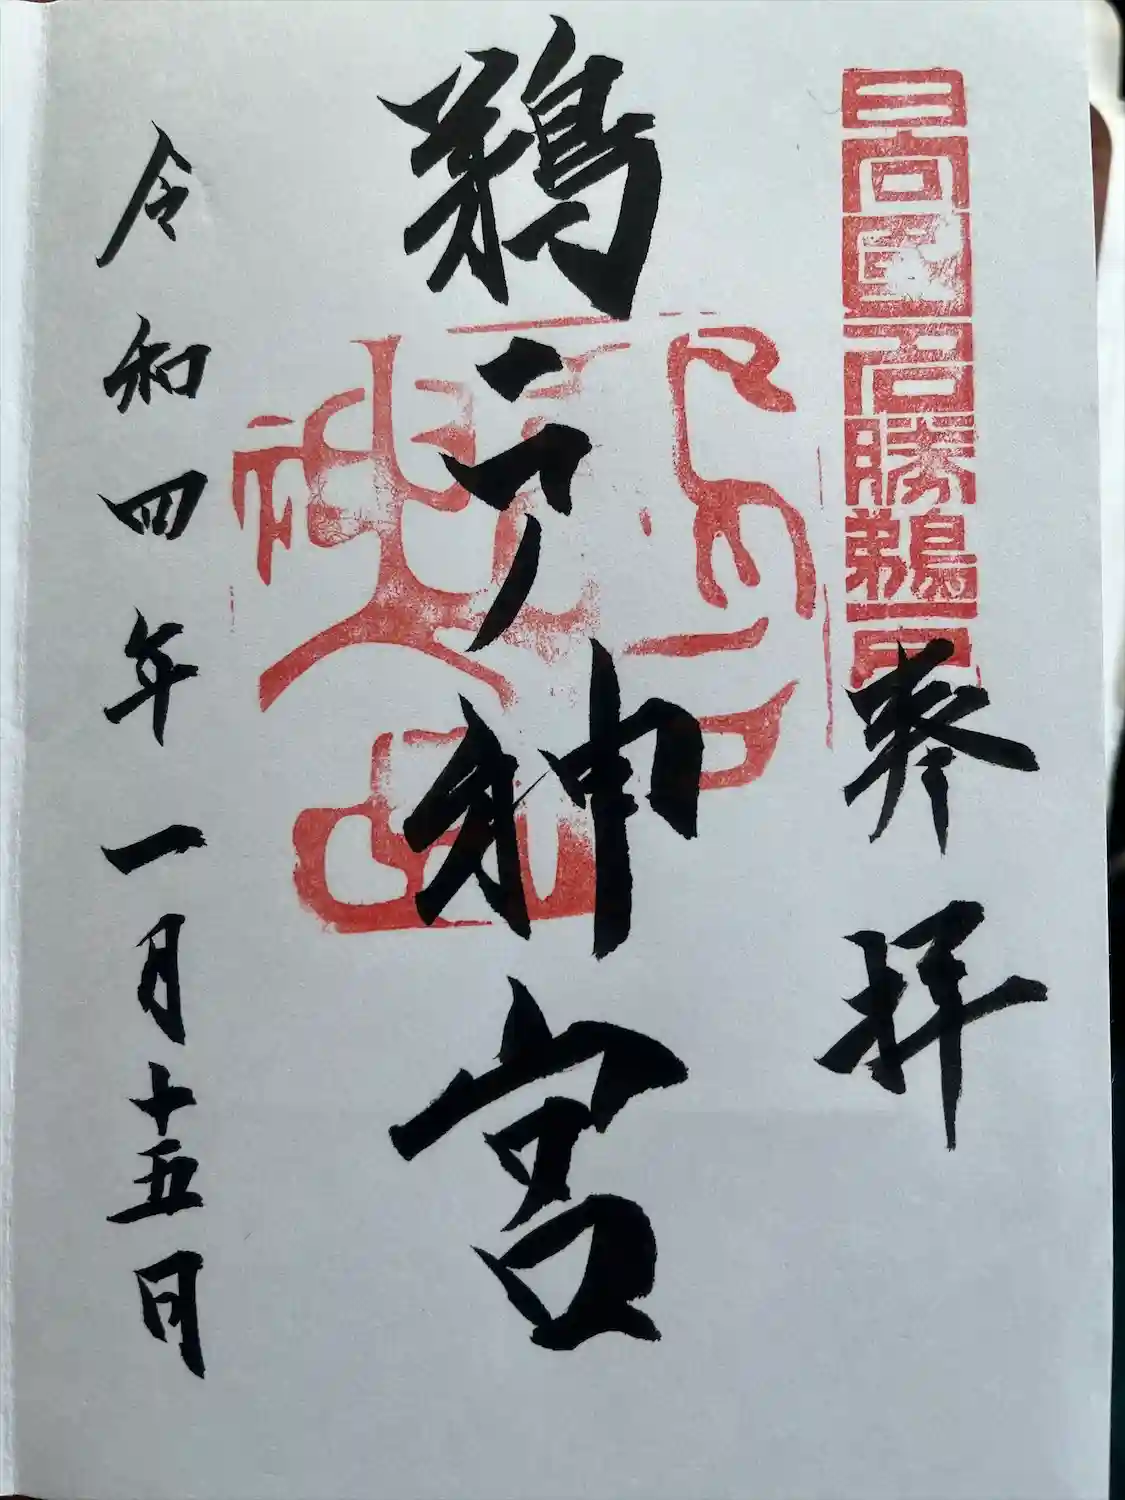 日向國名勝鵜戸
奉拝
鵜戸神宮
令和四年一月十五日